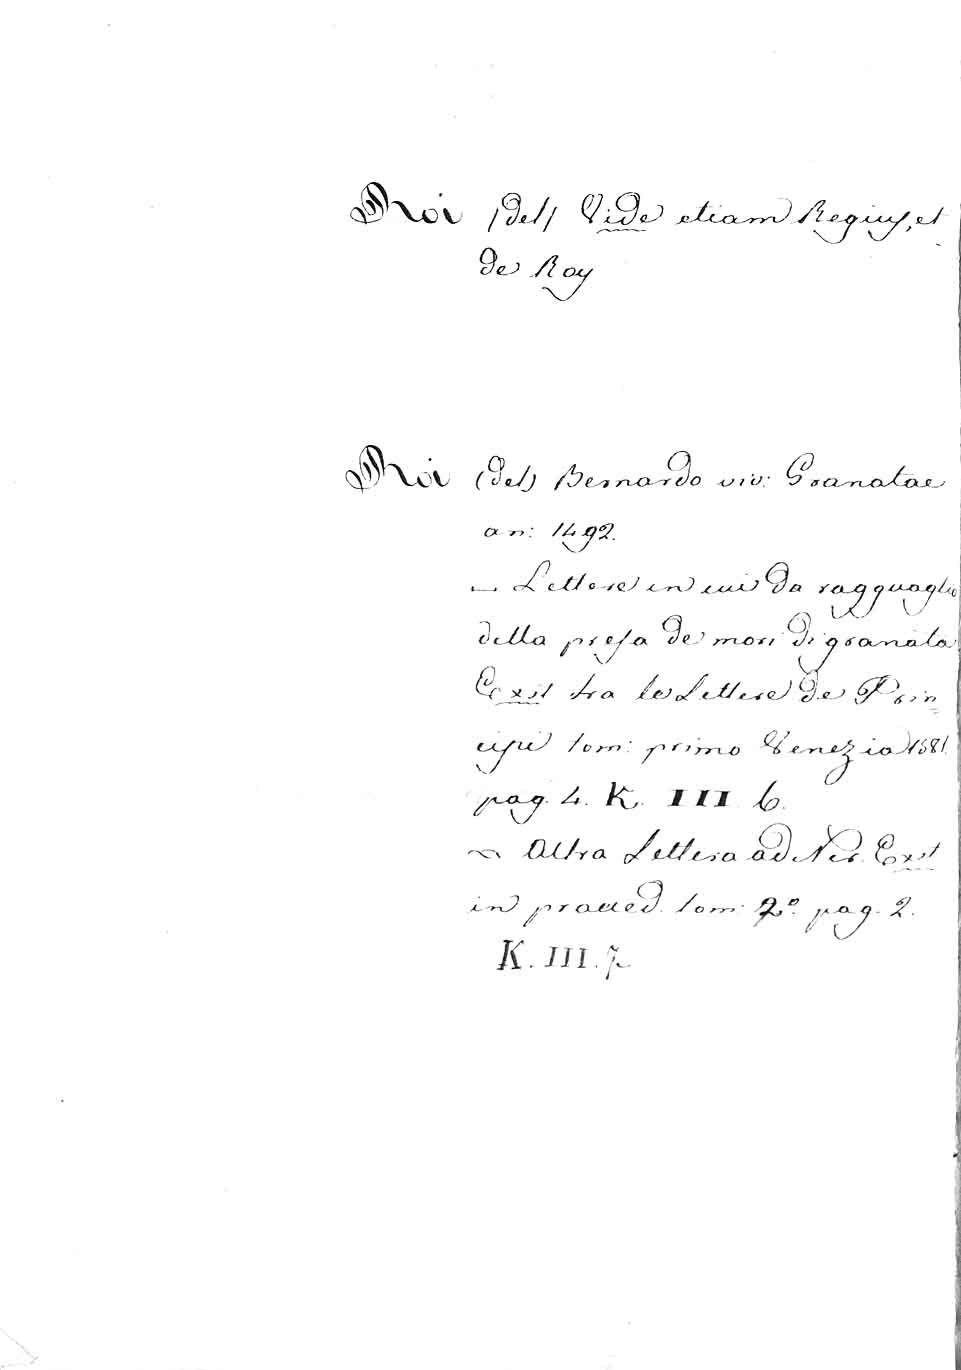 Roi (del) Vide etiam Regius, et
de Roy
Roi (del) Bernardo viv: Granatae
an: 1492.
— Lettere in cui da ragguaglio
della presa de mori di granata
Exst tra le Lettere de Prin=
cipi tom: primo Venezia 1581.
pag. 4. K. III 6.
~ Altra Lettera ad Exst
in praeced. tom: 2º. pag. 2.
K. III. 7